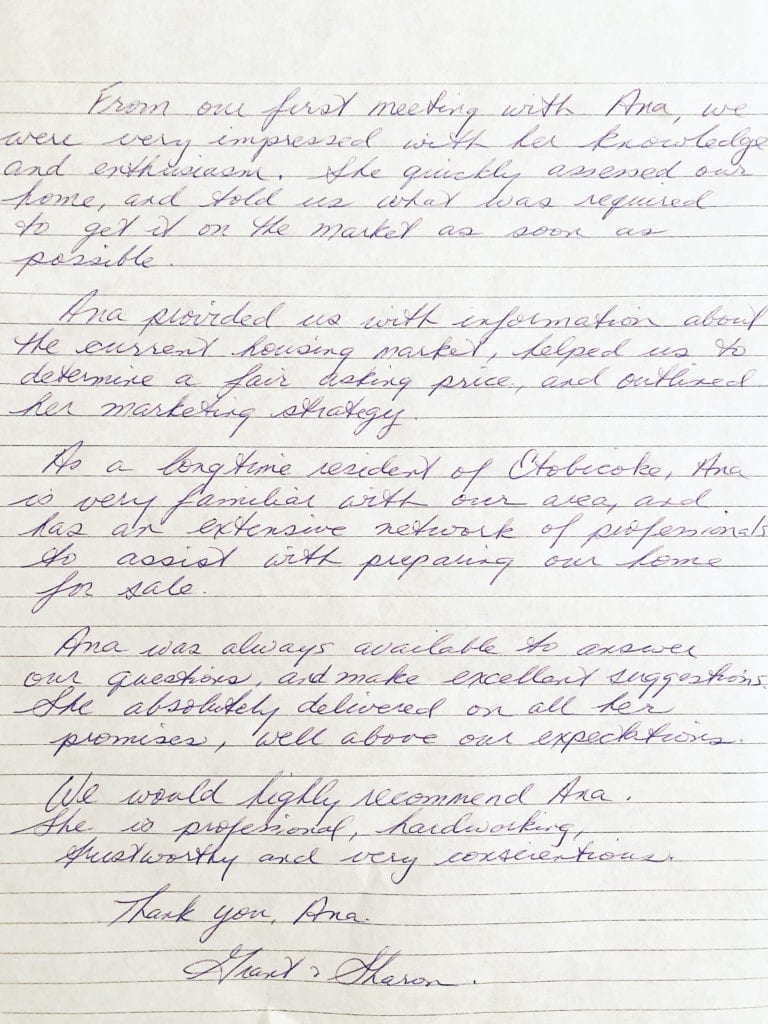 From our first meeting with Ana, we
were very impressed with her knowledge
and enthusiasm. She quickly assessed our
home, and told us what was required
to get it on the market as soon as
possible.
Ana provided us with information about
the current housing market, helped us to
determine a fair asking price, and outlined
her marketing strategy.
As a longtime resident of Etobicoke, Ana
is very familiar with our area, and
has an extensive network of professionals
to assist with preparing our home
for sale.
Ana was always available to answer
our questions, and make excellent suggestions.
She absolutely delivered on all her
promises, well above our expectations.
We would highly recommend Ana.
She is professional, hardworking,
trustworthy and very conscientious.
Thank you, Ana.
Grant & Sharon.